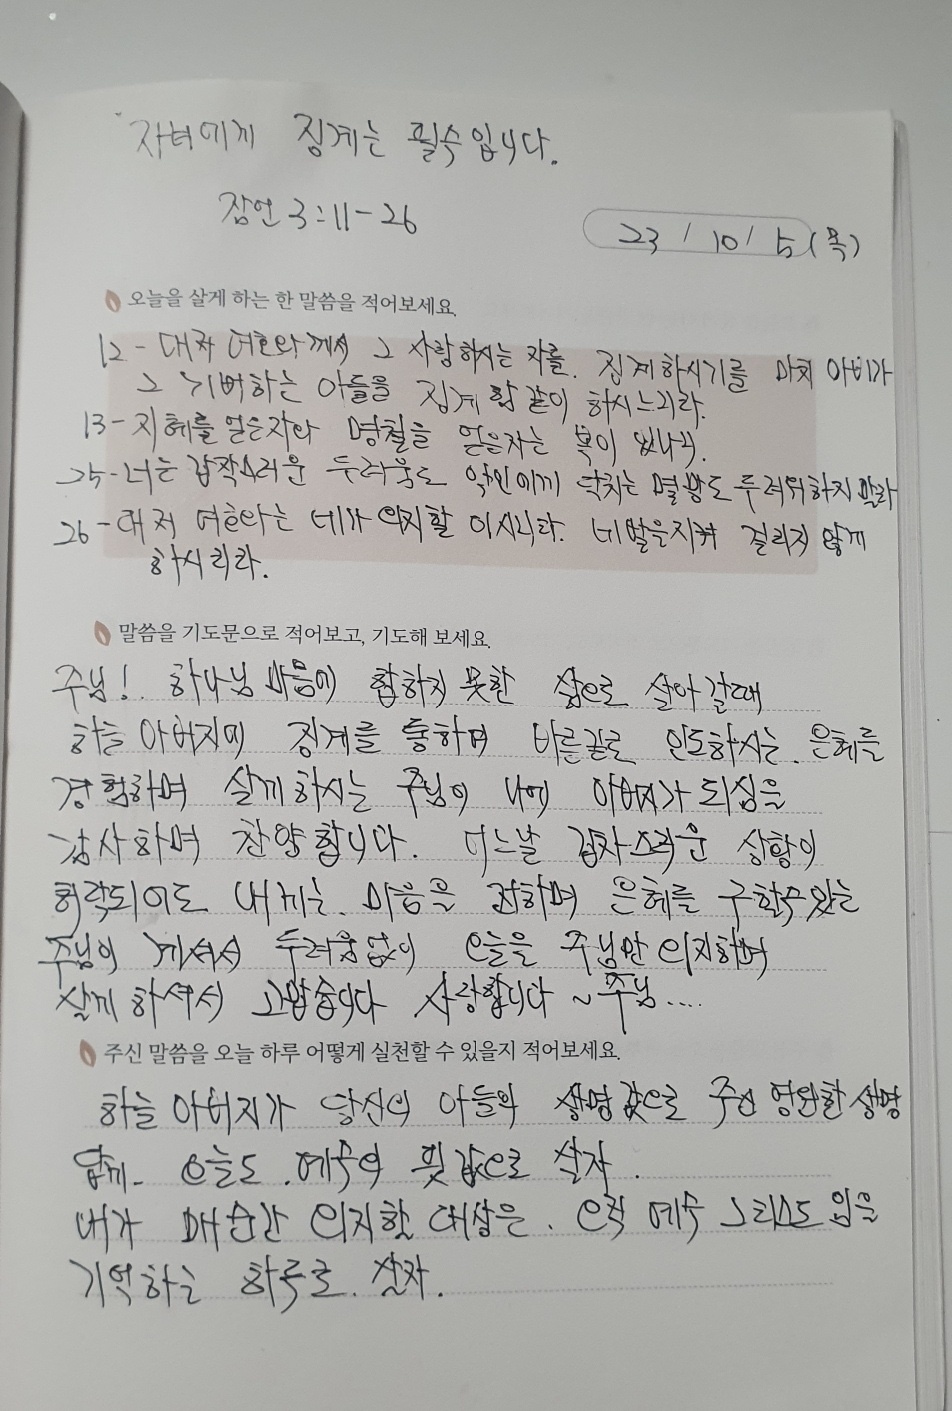 자녀에게 징계는 필수입니다.
잠언 3:11-26
23 / 10 / 5 (목)
오늘을 살게 하는 한 말씀을 적어보세요.
12 - 대저 여호와께서 그 사랑하시는 자를. 징계하시기를 마치 아비가
그 기뻐하는 아들을 징계 함 같이 하시느니라.
13 - 지혜를 얻은자와 명철을 얻은자는 복이 있나니.
25 - 너는 갑작스러운 두려움도 악인에게 닥치는 멸망도 두려워하지 말라
26 - 대저 여호와는 네가 의지할 이시니라. 네 발을지켜 걸리지 않게
하시리라.
말씀을 기도문으로 적어보고, 기도해 보세요.
주님! 하나님 마음에 합하지 못한 삶으로 살아 갈때
하늘 아버지에 징계를 통하며 바른길로 인도하시는. 은혜를
경험하며 살게하시는 주님이 나에 아버지가 되심을
감사하며 찬양합니다. 어느날 갑자스러운 상황이
허락되어도 내게는. 마음을 전하며 은혜를 구할수있는
주님이 계셔서 두려움없이 오늘을 주님만 의지하며
살게 하셔서 고맙습니다 사랑합니다 ~ 주님....
주신 말씀을 오늘 하루 어떻게 실천할 수 있을지 적어보세요.
하늘 아버지가 당신의 아들의 생명 값으로 주신 영원한 생명
답게. 오늘도. 예수의 핏 값으로 살자.
내가 매 순간 의지할 대상은. 오직 예수 그리스도 임을
기억하는 하루로. 살자.